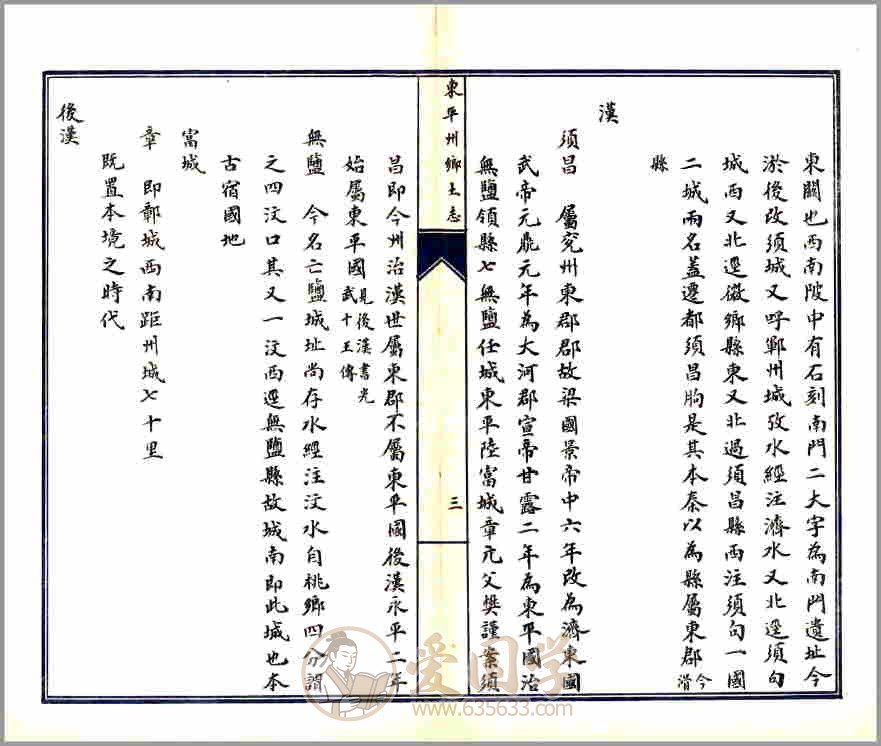 東闗也西南陂中有石刻南門二大字為南門遺址今
淤後改須城又呼鄆州城攷水經注濟水又北逕須句
城西又北逕微鄉縣東又北過須昌縣西注須句一國
二城兩名蓋遷都須昌朐是其本秦以為縣屬東郡今
滑
縣
漢
須昌　屬兗州東郡郡故梁國景帝中六年改為濟東國
武帝元鼎元年為大河郡宣帝甘露二年為東平國治
無鹽領縣七無鹽任城東平陸富城章亢父樊謹案須
東平州鄉土志
三
昌即今州治漢世屬東郡不屬東平國後漢永平二年
始屬東平國見後漢書光
武十王傳
無鹽　今名亡鹽城址尚存水經注汶水自桃鄉四分謂
之四汶口其又一汶西逕無鹽縣故城南即此城也本
古宿國地
富城
章　即鄣城西南距州城七十里
既置本境之時代
後漢
愛国学
www.635633.com